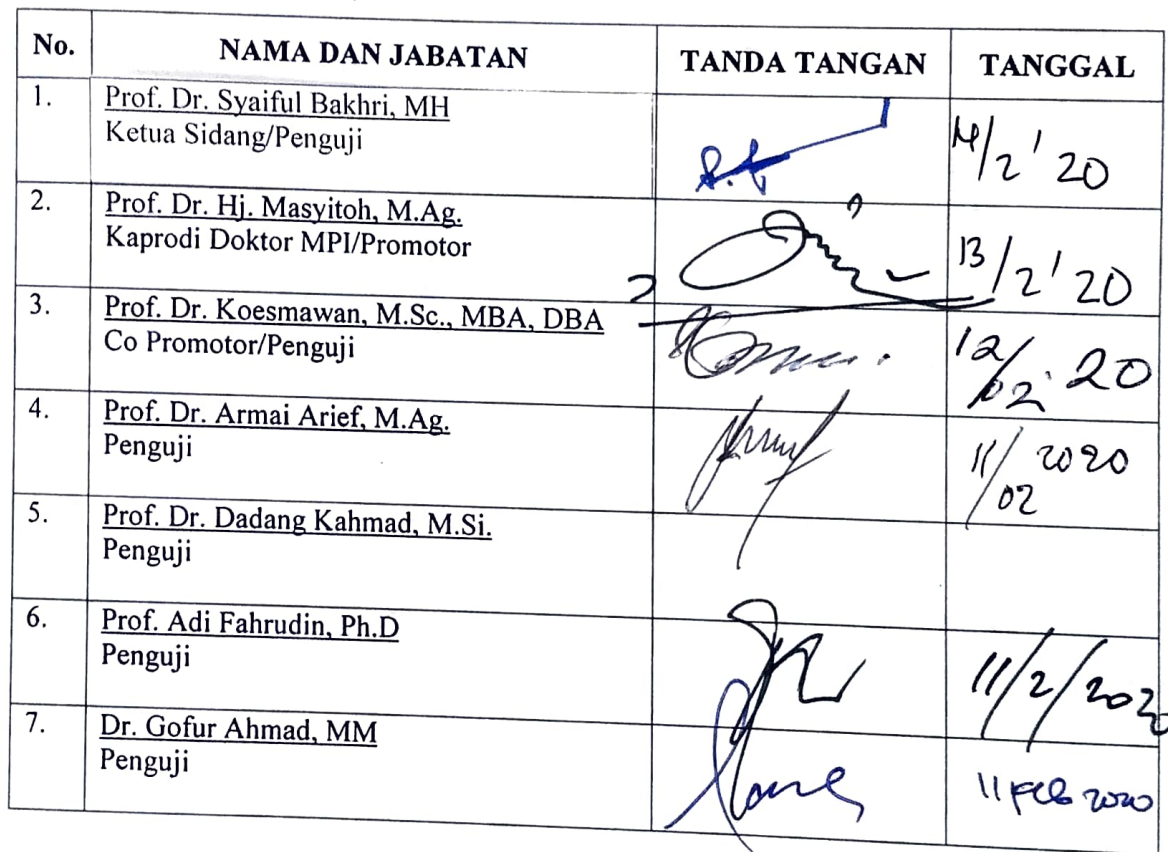 No. NAMA DAN JABATAN TANDA TANGAN TANGGAL
1. Prof. Dr. Syaiful Bakhri, MH
Ketua Sidang/Penguji
14/2 ' 20
2. Prof. Dr. Hj. Masyitoh, M.Ag.
Kaprodi Doktor MPI/Promotor
13/2 ' 20
3. Prof. Dr. Koesmawan, M.Sc., MBA, DBA
Co Promotor/Penguji
12/02 ' 20
4. Prof. Dr. Armai Arief, M.Ag.
Penguji
11/02 2020
5. Prof. Dr. Dadang Kahmad, M.Si.
Penguji
6. Prof. Adi Fahrudin, Ph.D
Penguji
11/2/2020
7. Dr. Gofur Ahmad, MM
Penguji
11 Feb 2020